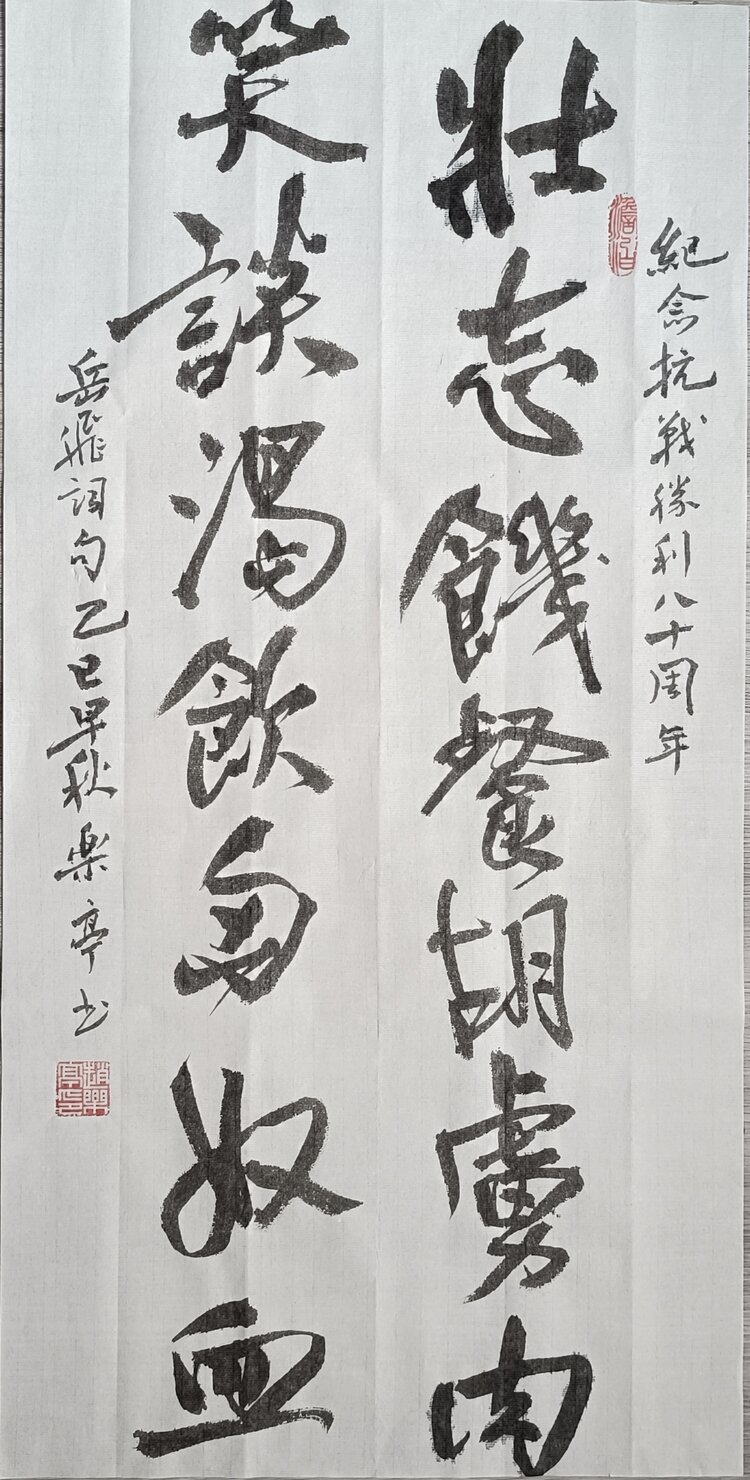 紀念抗戰勝利八十周年
澹泊
壯志饑餐胡虜肉
笑談渴飲匈奴血
岳飛詞句乙巳早秋樂亭书
趙樂亭印